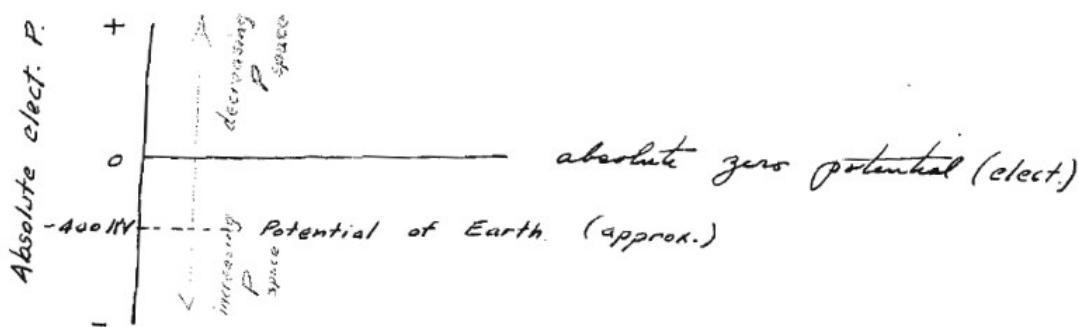 Absolute elect. P.
+
decreasing
P
space
0
absolute zero potential (elect.)
-400 KV
Potential of Earth. (approx.)
increasing
P
space
-